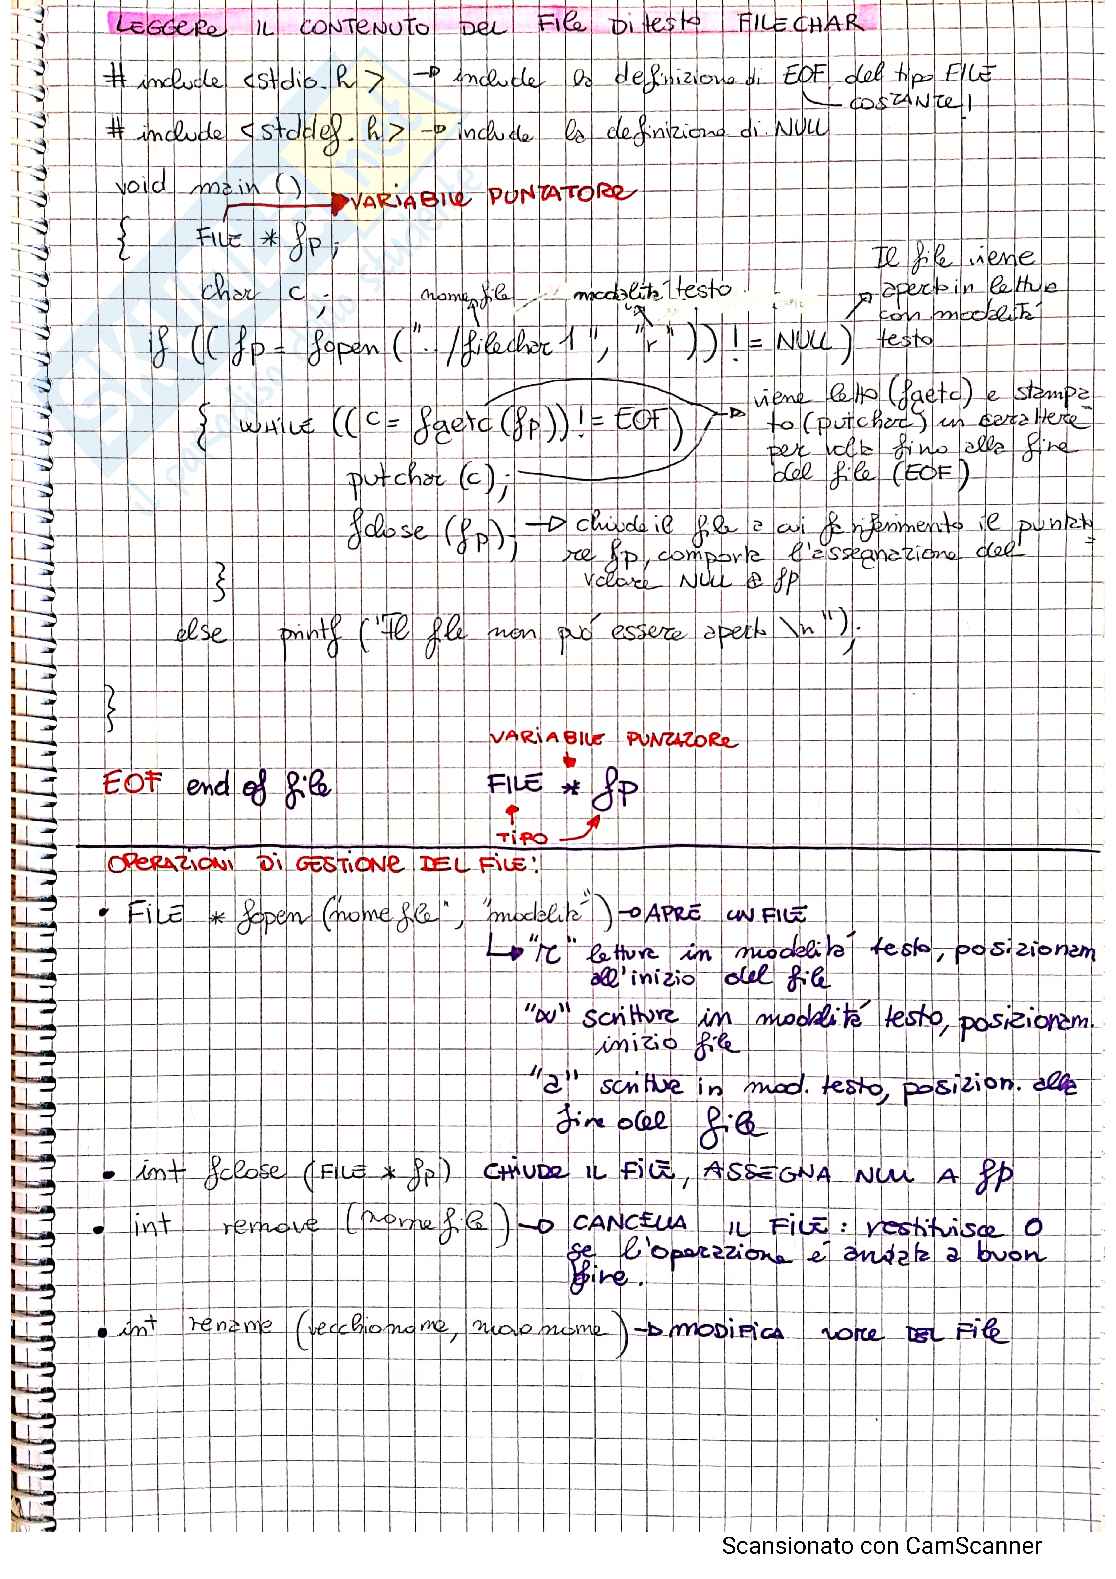 LEGGERE IL CONTENUTO DEL File Di testo FILECHAR
# include <stdio.h> → include la definizione di EOF, del tipo FILE
COSTANTE!
# include <stddef.h> → include la definizione di NULL
void main ()
VARIABILE PUNTATORE
{ FILE * fp;
char c;
nome file modalità testo
Il file viene
aperto in lettura
con modalità
testo
if (( fp = fopen ("../filechar1", "r")) != NULL)
{ WHILE ((c = fgetc(fp)) != EOF)
putchar (c);
viene letto (fgetc) e stampa
to (putchar) un carattere
per volta fino alla fine
del file (EOF)
fclose (fp); → chiude il file a cui fa riferimento il puntato
re fp, comporta l'assegnazione del
valore NULL a fp
}
else printf ("Il file non può essere aperto \n");
}
VARIABILE PUNTATORE
EOF end of file
FILE * fp
TIPO
OPERAZIONI DI GESTIONE DEL FILE:
• FILE * fopen ("nome file", "modalità") → APRE UN FILE
"r" lettura in modalità testo, posizionam
all'inizio del file
"w" scrittura in modalità testo, posizionam.
inizio file
"a" scrittura in mod. testo, posizion. alla
fine del file
• int fclose (FILE * fp) CHIUDE IL FILE, ASSEGNA NULL A fp
• int remove (nome file) → CANCELLA IL FILE: restituisce 0
se l'operazione è andata a buon
fine.
• int rename (vecchio nome, nuovo nome) → MODIFICA nome DEL File
Scansionato con CamScanner